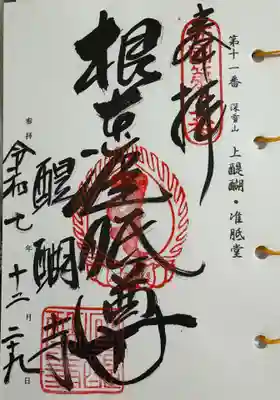 第十一番 深雪山 上醍醐・准胝堂
奉拝
根本准胝尊
醍醐寺
奉拝 令和七年十二月二十九日